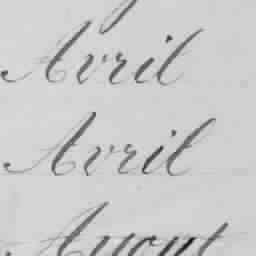 Avril
Avril
Auout